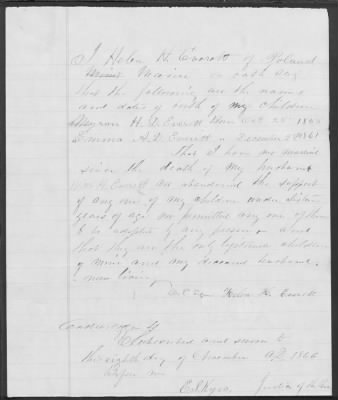 I Helen H. Everett of Poland
Maine on oath say
that the following are the names
and dates of birth of my children
Myron H. D. Everett Born Oct 25 186
Emma A. D. Everett " December 5 1861
That I have not married
since the death of my husband
Everett nor abandoned the support
of any one of my children under sixteen
years of age nor permitted any one of them
to be adopted by any person
that they are the only legitimate children
of mine and my deceased husband
now living
Helen H. Everett
Androscoggin
Subscribed and sworn to
the eighth day of November AD 1866
Before me
Justice of the Peace